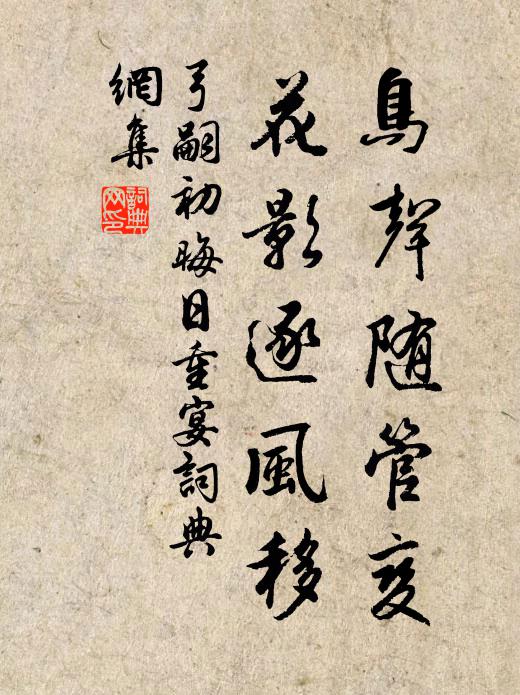 鳥聲随管变
花影逐風移
弓嗣初晦日重宴詞典
網集
詞典网印